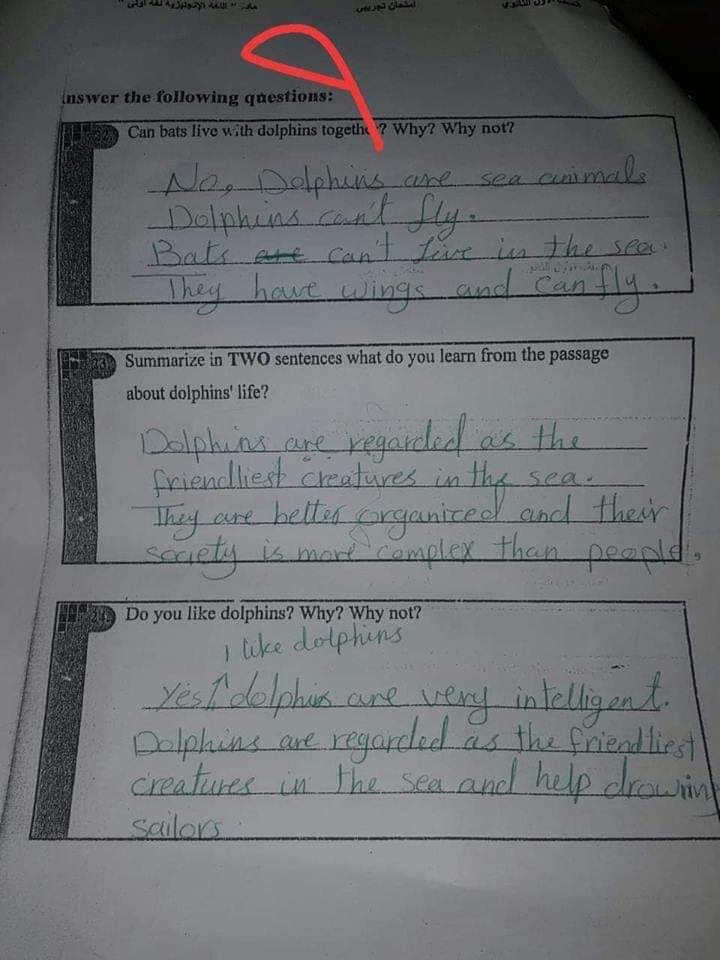 مادة " اللغة الإنجليزية لغة أولى "
امتحان تجريبي
nswer the following questions:
22 Can bats live with dolphins togethe ? Why? Why not?
No, Dolphins are sea animals
Dolphins can't fly.
Bats are can't live in the sea.
They have wings and can fly.
23 Summarize in TWO sentences what do you learn from the passage
about dolphins' life?
Dolphins are regarded as the
friendliest creatures in the sea.
They are better organized and their
society is more complex than people.
24 Do you like dolphins? Why? Why not?
I like dolphins
Yes, dolphins are very intelligent.
Dolphins are regarded as the friendliest
creatures in the sea and help drowning
sailors